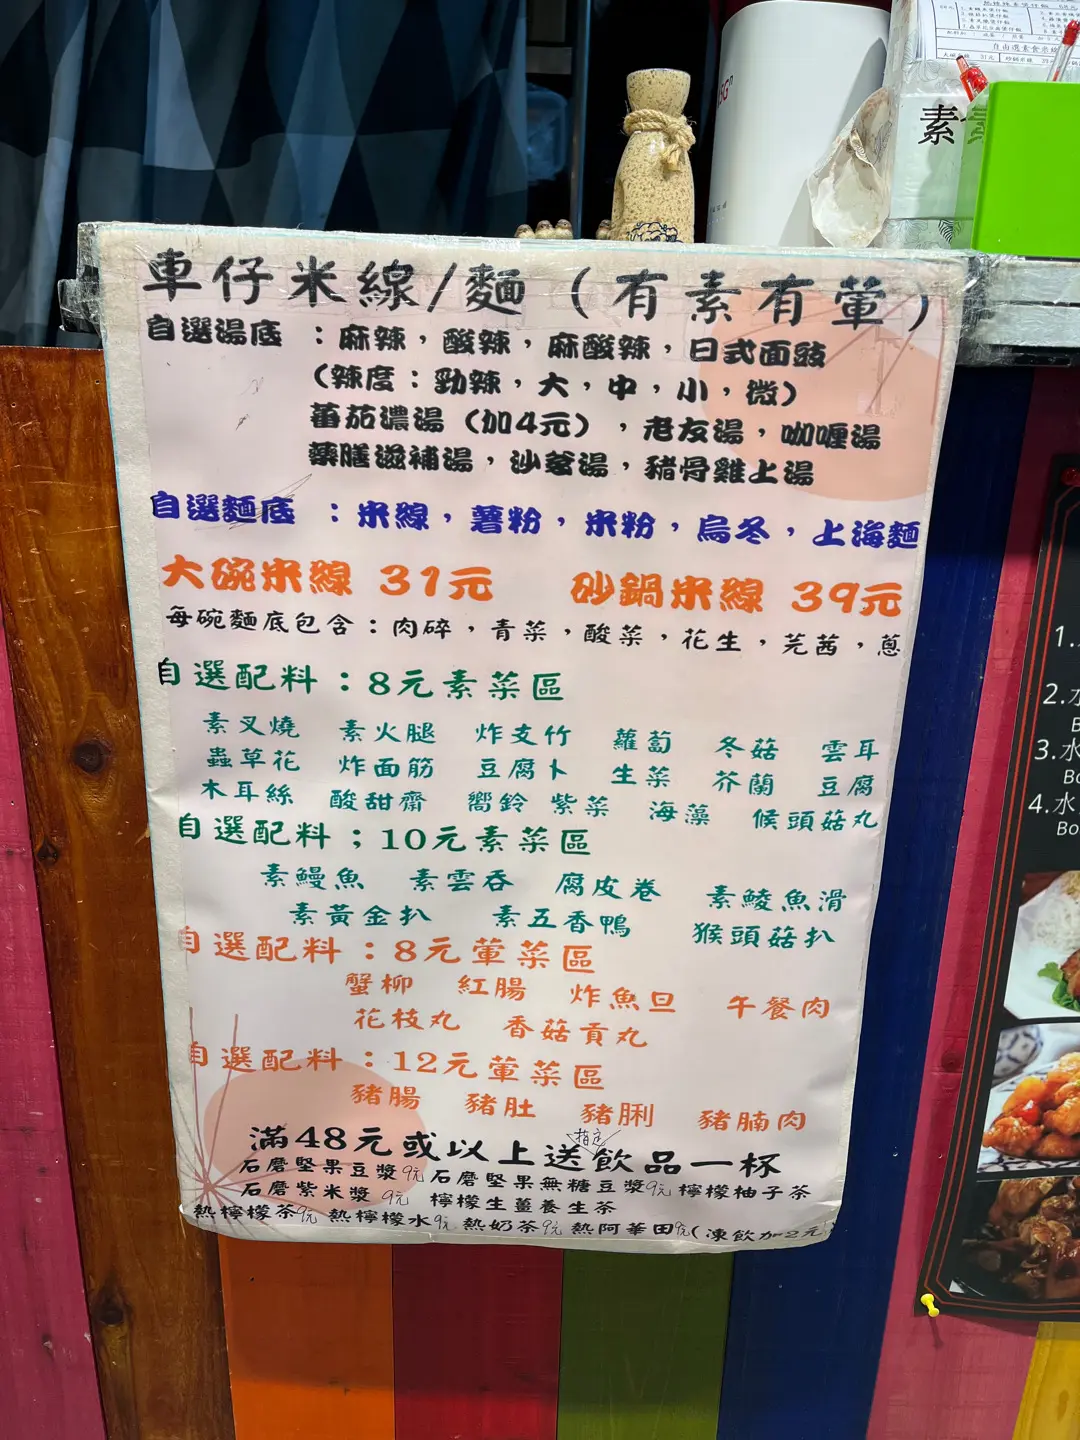 素
車仔米線/麵（有素有葷）
自選湯底 ：麻辣，酸辣，麻酸辣，日式面豉
（辣度：勁辣，大，中，小，微）
蕃茄濃湯（加4元），老友湯，咖喱湯
藥膳滋補湯，沙爹湯，豬骨雞上湯
自選麵底 ：米線，薯粉，米粉，烏冬，上海麵
大碗米線 31元 砂鍋米線 39元
每碗麵底包含：肉碎，青菜，酸菜，花生，芫茜，蔥
自選配料：8元素菜區
素叉燒 素火腿 炸支竹 蘿蔔 冬菇 雲耳
蟲草花 炸面筋 豆腐卜 生菜 芥蘭 豆腐
木耳絲 酸甜齋 嚮鈴 紫菜 海藻 候頭菇丸
自選配料；10元素菜區
素鰻魚 素雲吞 腐皮卷 素鯪魚滑
素黃金扒 素五香鴨 猴頭菇扒
自選配料：8元葷菜區
蟹柳 紅腸 炸魚旦 午餐肉
花枝丸 香菇貢丸
自選配料：12元葷菜區
豬腸 豬肚 豬脷 豬腩肉
滿48元或以上送指定飲品一杯
石磨堅果豆漿9元 石磨堅果無糖豆漿9元 檸檬柚子茶
石磨紫米漿 9元 檸檬生薑養生茶
熱檸檬茶9元 熱檸檬水9元 熱奶茶9元 熱阿華田9元(凍飲加2元)
1.
2.水
3.水
Bo
4.水
Bo